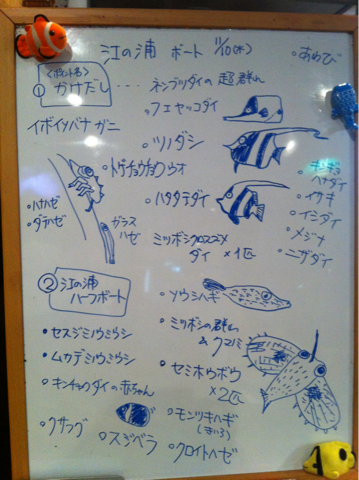 江の浦 ボート 11/10(木)
・あわび
<ポイント名>
① かけだし
‥‥ネンブツダイの超群れ
・フエヤッコダイ
イボイソバナガニ
・ツノダシ
・トゲチョウチョウウオ
・ハタタテダイ
・ハナハゼ
・ダテハゼ
ガラス
ハゼ
ミツボシクロスズメ
ダイ ×1匹
ハナダイ
・イサキ
・イシダイ
・メジナ
・ニザダイ
② 江の浦
ハーフボート
・ソウシハギ
・ミツボシの群れ
& クマノミ
・セスジミノウミウシ
・ムカデミノウミウシ
・セミホウボウ
×2匹
・キンチャクダイの赤ちゃん
・クサフグ
・スジベラ
・モンツキハギ
(きいろ)
・クロイトハゼ